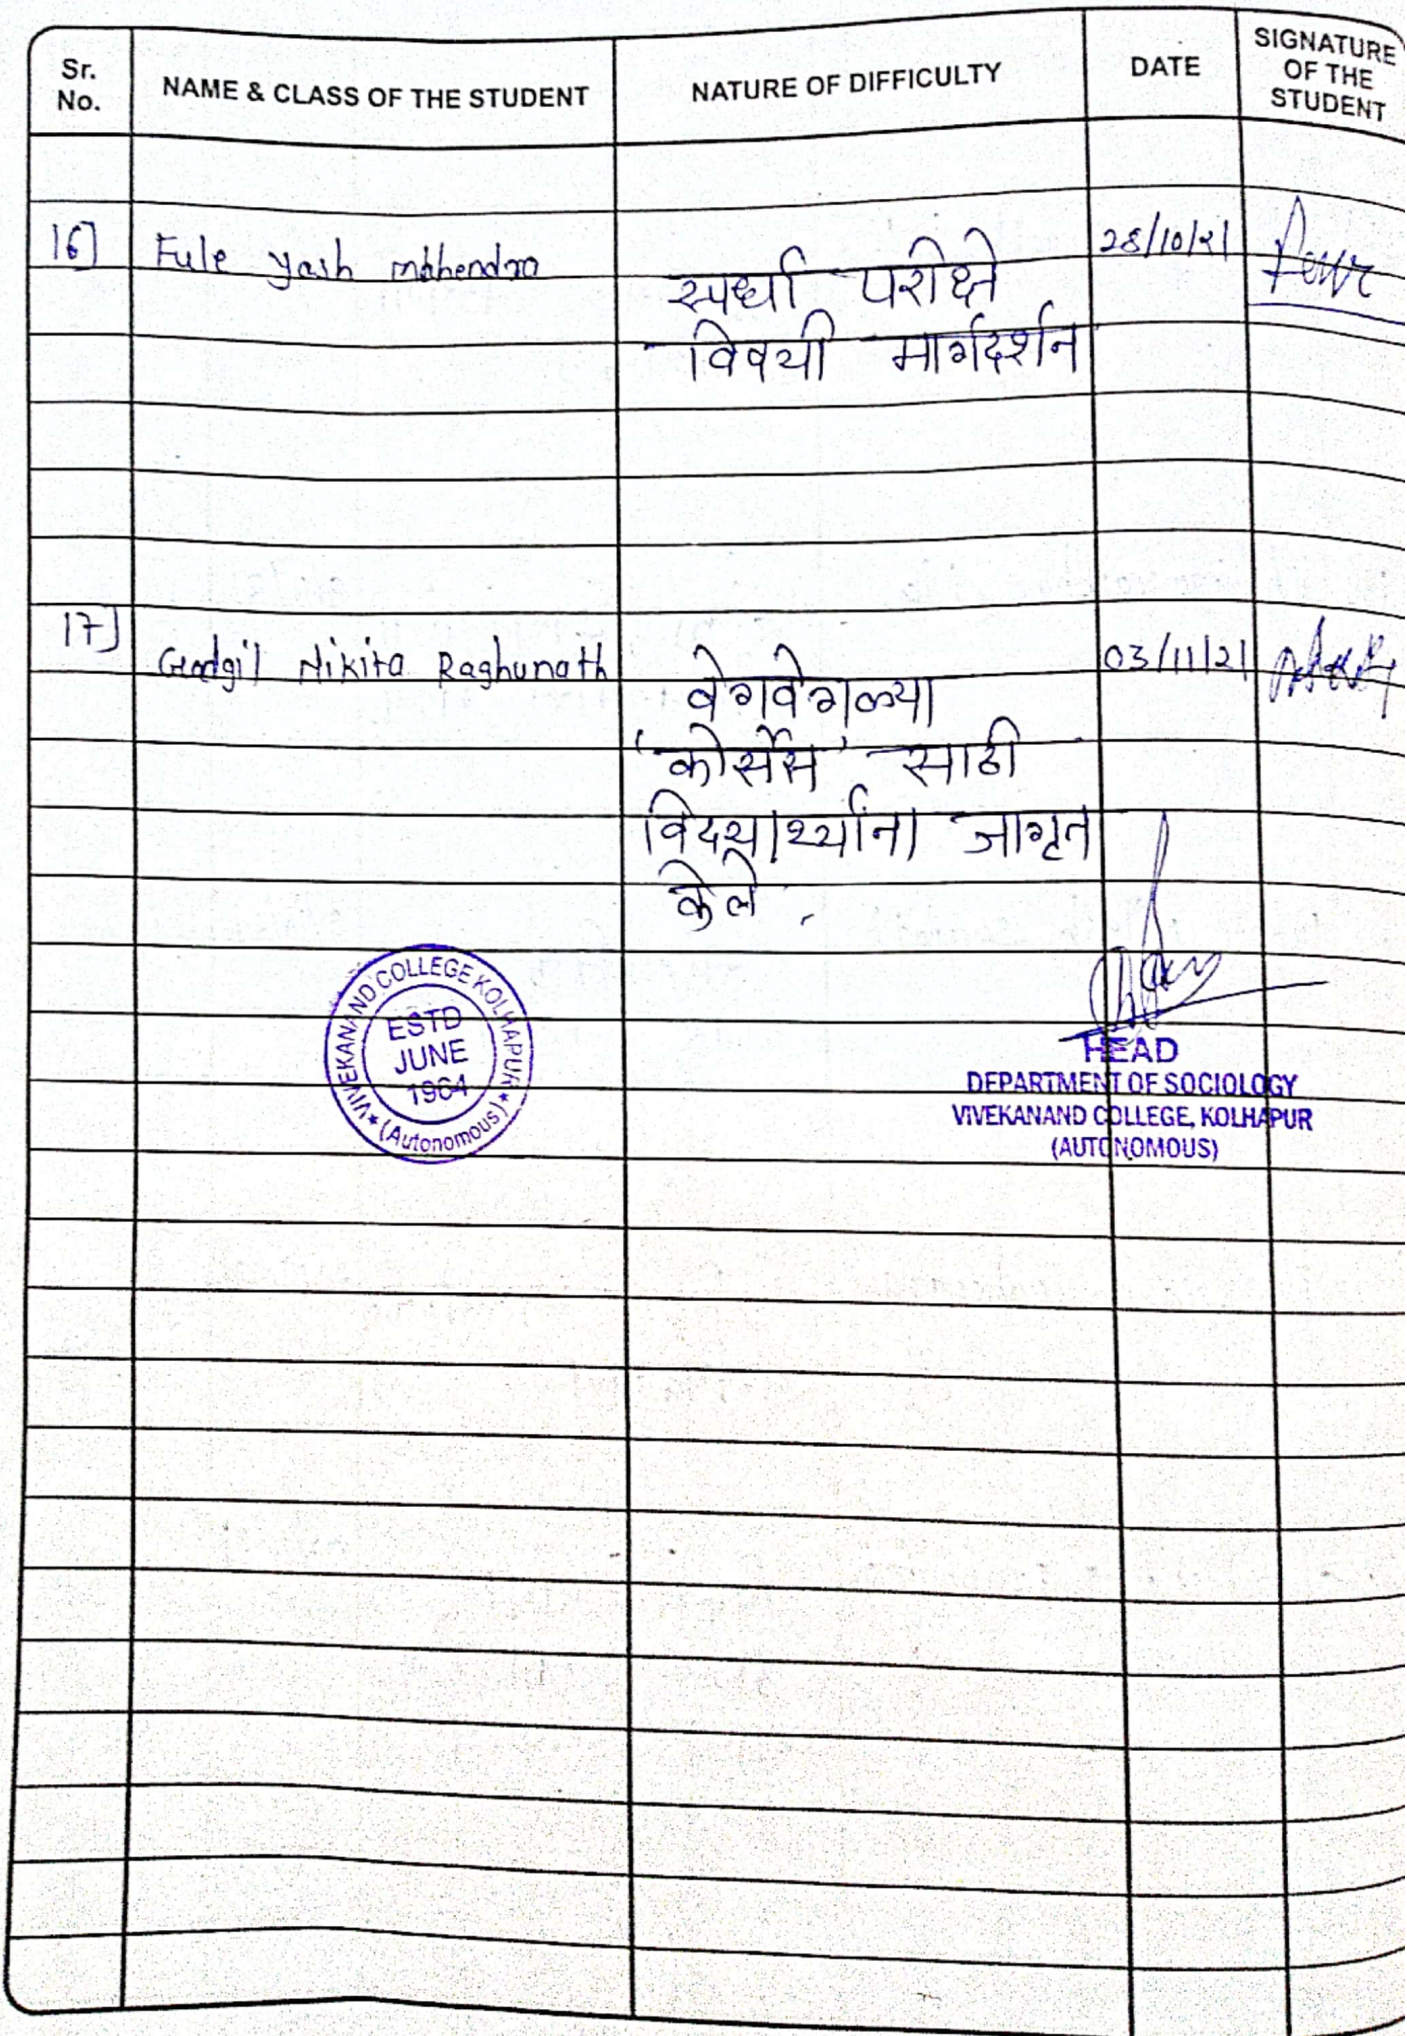 Sr. No.
NAME & CLASS OF THE STUDENT
NATURE OF DIFFICULTY
DATE
SIGNATURE OF THE STUDENT
16] Fule Yash Mahendra 28/10/21
स्पर्धा परीक्षे
विषयी मार्गदर्शन
17] Gadgil Nikita Raghunath 03/11/21
वेगवेगळ्या
'कोर्सेस' साठी
विद्यार्थ्यांना जागृत
केले.
VIVEKANAND COLLEGE KOLHAPUR
(Autonomous)
ESTD
JUNE
1964
HEAD
DEPARTMENT OF SOCIOLOGY
VIVEKANAND COLLEGE, KOLHAPUR
(AUTONOMOUS)